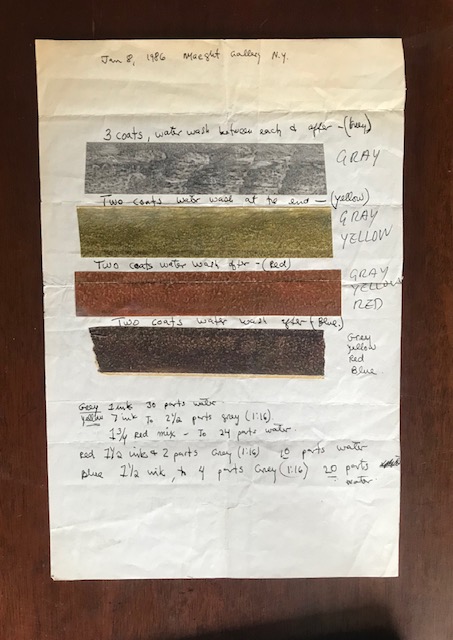 Jan 8, 1986 Maeght Gallery N.Y.
3 coats, water wash between each & after - (Grey)
GRAY
Two coats water wash at the end - (yellow)
GRAY
YELLOW
Two coats water wash after - (Red)
GRAY
YELLOW
RED
Two coats water wash after (Blue.)
Grey
Yellow
Red
Blue
Grey 1 ink 30 parts water
yellow 7 ink To 2 1/2 parts grey (1:16).
1 3/4 Red mix - To 24 parts water.
Red 7 1/2 ink & 2 parts Grey (1:16) 10 parts water
Blue 7 1/2 ink, to 4 parts Grey (1:16) 20 parts
water